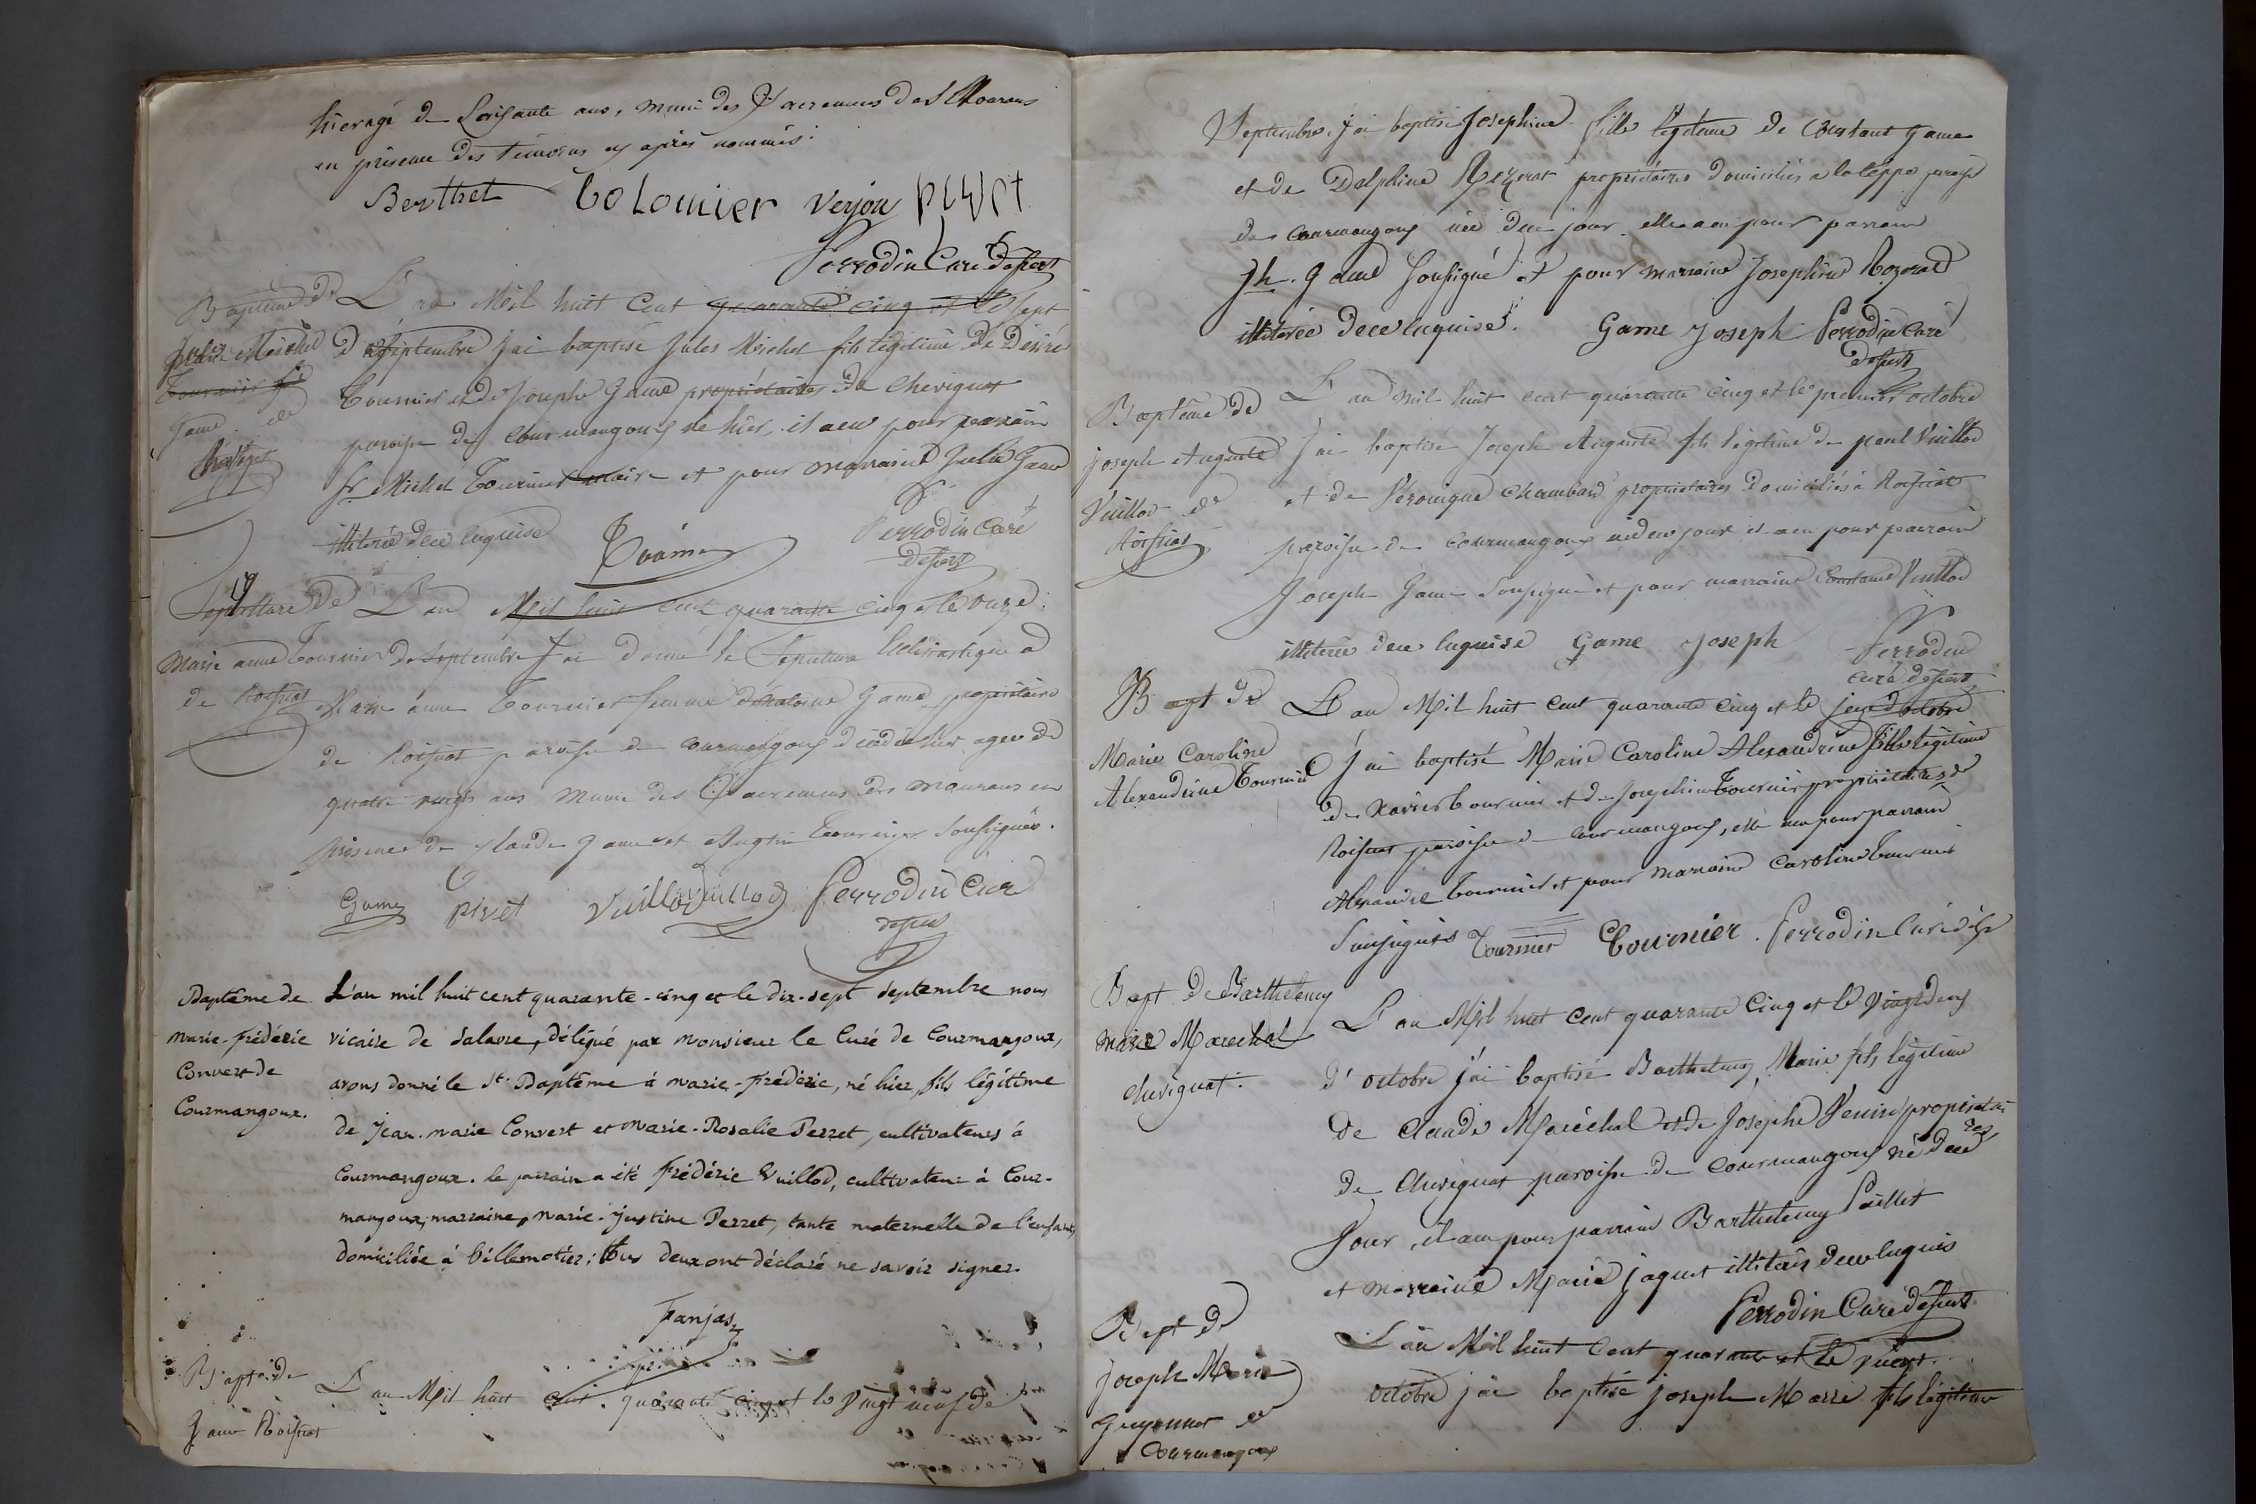 agé de soixante ans, muni des Sacremens des Mourans
en présence des témoins cy après nommés.
Berthet Colomier Verjon pivet
Perrodin Curé desserv
Baptême de
Jules Michel
Tournier
Game de
Chevignat
L'an Mil huit Cent quarante cinq et le sept
de Septembre j'ai baptisé Jules Michel fils légitime de Désiré
Tournier et de Josephe Game propriétaires de Chevignat
paroisse de Courmangoux né hier, il a eu pour parrain
Sr Michel Tournier maire et pour marraine Julie Game
illiterée de ce enquise
Perrodin Curé
desserv
Sepulture de
Marie anne Tournier
de Roissiat
L'an Mil huit cent quarante cinq et le onze
de Septembre J'ai donné la Sepulture Ecclésiastique a
Marie anne Tournier femme d'Antoine Game propriétaire
de Roissiat paroisse de Courmangoux décédée hier agée de
quatre vingts ans munie des Sacremens des mourans en
présence de Claude Game et Augtin Tournier Soussignés.
Game pivet Vuillod Vuillod Perrodin Curé
desserv
Baptême de
Marie-Frédéric
Convert de
Courmangoux.
L'an mil huit cent quarante-cinq et le dix-sept septembre nous
vicaire de Salavre, délégué par Monsieur le Curé de Courmangoux,
avons donné le St. Baptême à Marie-Frédéric, né hier, fils légitime
de Jean-Marie Convert et Marie-Rosalie Perret, cultivateurs à
Courmangoux. le parrain a été Frédéric Vuillod, cultivateur à Cour-
mangoux, marraine, Marie-Justine Perret, tante maternelle de l'enfant,
domiciliée à Villemotier; Tous deux ont déclaré ne savoir signer.
Fanjas
Bapt. de
Game Roissiat
L'an Mil huit cent quarante cinq et le vingt neuf de
Septembre, j'ai baptisé Josephine fille légitime de Constant Game
et de Delphine Rozerat propriétaires domiciliés a la teppe paroisse
de Courmangoux née du jour elle a eu pour parrain
Jh. Game Soussigné et pour marraine Josephine Rozerat
illiterée de ce enquise. Game Joseph Perrodin Curé
desserv
Baptême de
Joseph Auguste
Vuillod de
Roissiat
L'an mil huit cent quarante cinq et le premier octobre
j'ai baptisé Joseph Auguste fils légitime de paul Vuillod
et de Véronique Chambard propriétaires domiciliés à Roissiat
paroisse de Courmangoux né du jour il a eu pour parrain
Joseph Game Soussigné et pour marraine Constance Vuillod
illiterée de ce enquise Game Joseph Perrodin
curé desserv
Bapt de
Marie Caroline
Alexandrine Tournier
L'an Mil huit Cent quarante cinq et le seize d'octobre
j'ai baptisé Marie Caroline Alexandrine fille légitime
de Xavier Tournier et de Josephine Tournier propriétaires de
Roissiat paroisse de Courmangoux, elle a eu pour parrain
Alexandre Tournier et pour marraine Caroline Tournier
Soussignés Tournier Tournier. Perrodin Curé des
Bapt de Barthelemy
Marie Marechal
Chevignat.
L'an Mil huit Cent quarante Cinq et le Vingt deux
d'octobre j'ai baptisé Barthelemy Marie fils légitime
de Claude Maréchal et de Josephe Venin propriétai-
res
de Chevignat paroisse de Courmangoux né de ce
Jour, il a eu pour parrain Barthelemy Paillet
et marraine Marie Jaquet illiterés de ce enquis
Perrodin Curé desserv
Bapt de
Joseph Marie
Guyonnet de
Courmangoux
L'an Mil huit Cent quarante et le
octobre j'ai baptisé Joseph Marie fils légitime